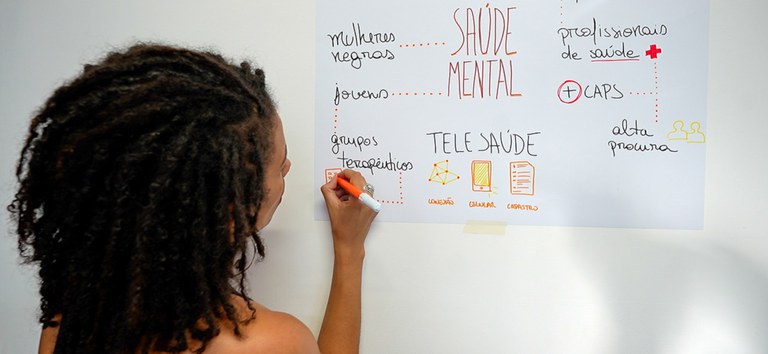 mulheres
negras
SAÚDE
MENTAL
jovens
grupos
terapêuticos
TELE SAÚDE
CONEXÃO
CELULAR
CADASTRO
profissionais
de saúde
+ CAPS
alta
procura